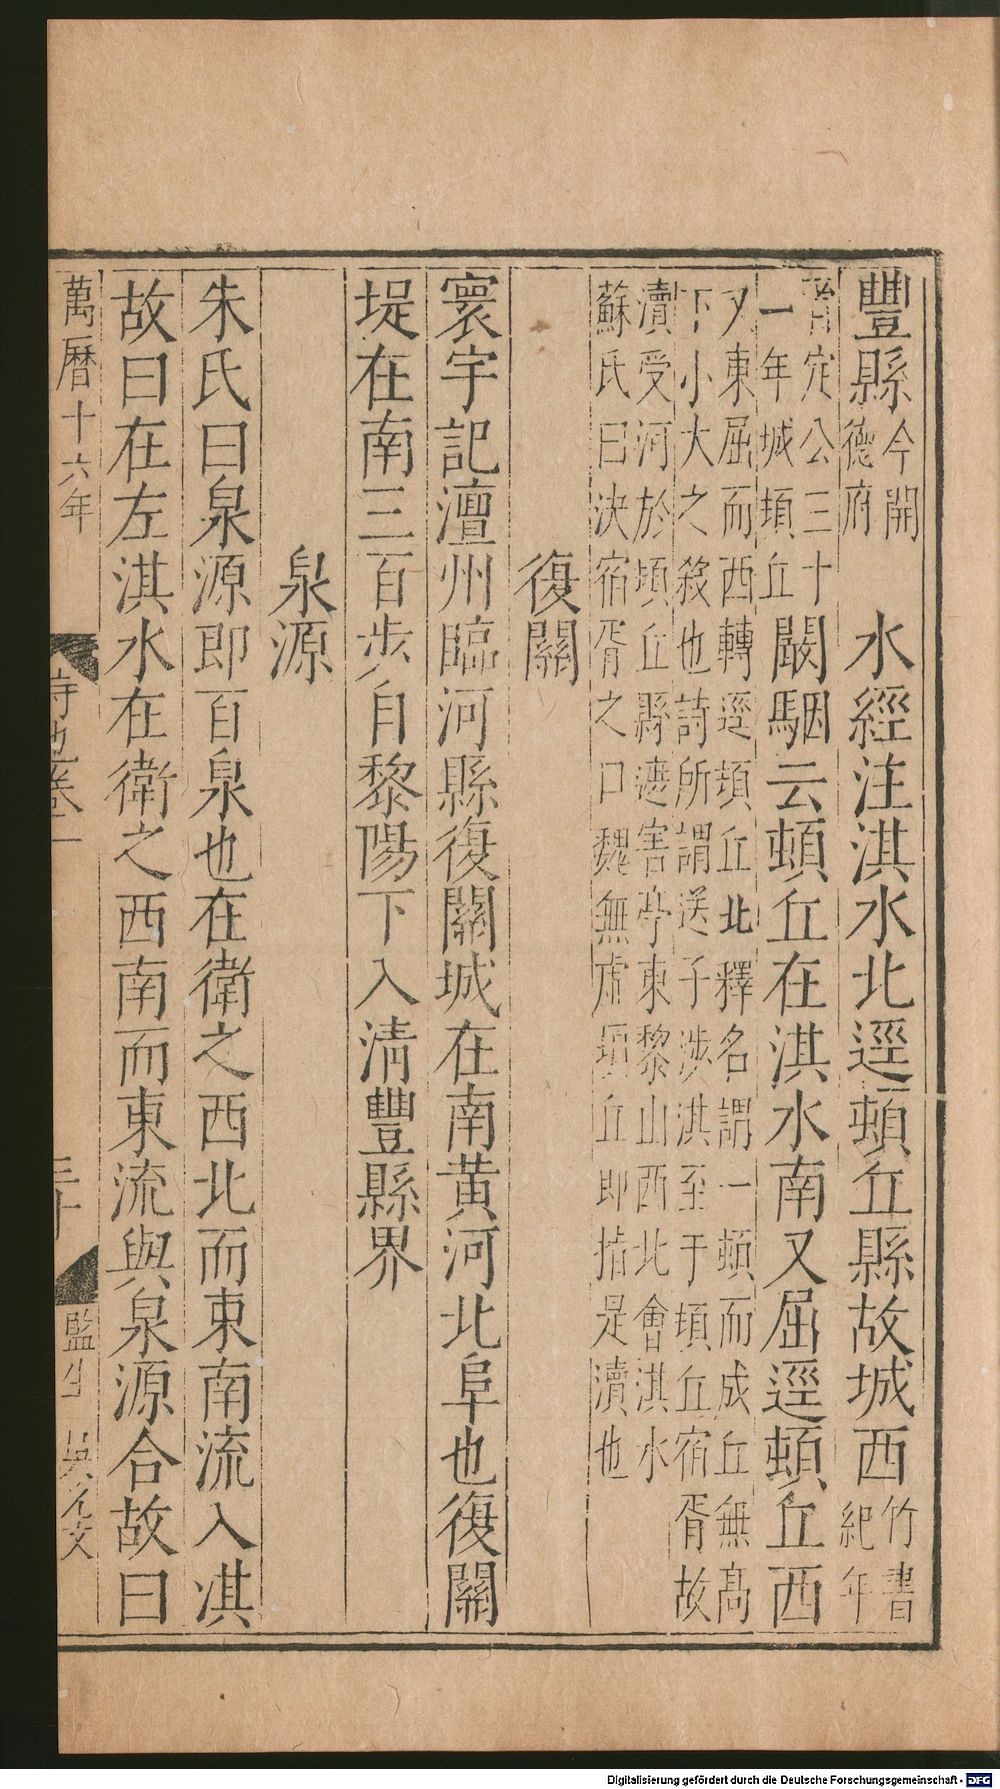 豐縣今開德府　水經注淇水北逕頓丘縣故城西竹書紀年
晉定公三十一年城頓丘闞駰云頓丘在淇水南又屈逕頓丘西
又東屈而西轉逕頓丘北釋名謂一頓而成丘無髙下小大之殺也詩所謂送子涉淇至于頓丘宿胥故
瀆受河於頓丘縣遮害亭東黎山西北會淇水蘇氏曰決宿胥之口魏無虛頓丘即指是瀆也
復關
寰宇記澶州臨河縣復關城在南黄河北阜也復關
堤在南三百步自黎陽下入清豐縣界
泉源
朱氏曰泉源即百泉也在衛之西北而東南流入淇
故曰在左淇水在衛之西南而東流與泉源合故曰
萬曆十六年
監生
Digitalisierung gefördert durch die Deutsche Forschungsgemeinschaft - DFG